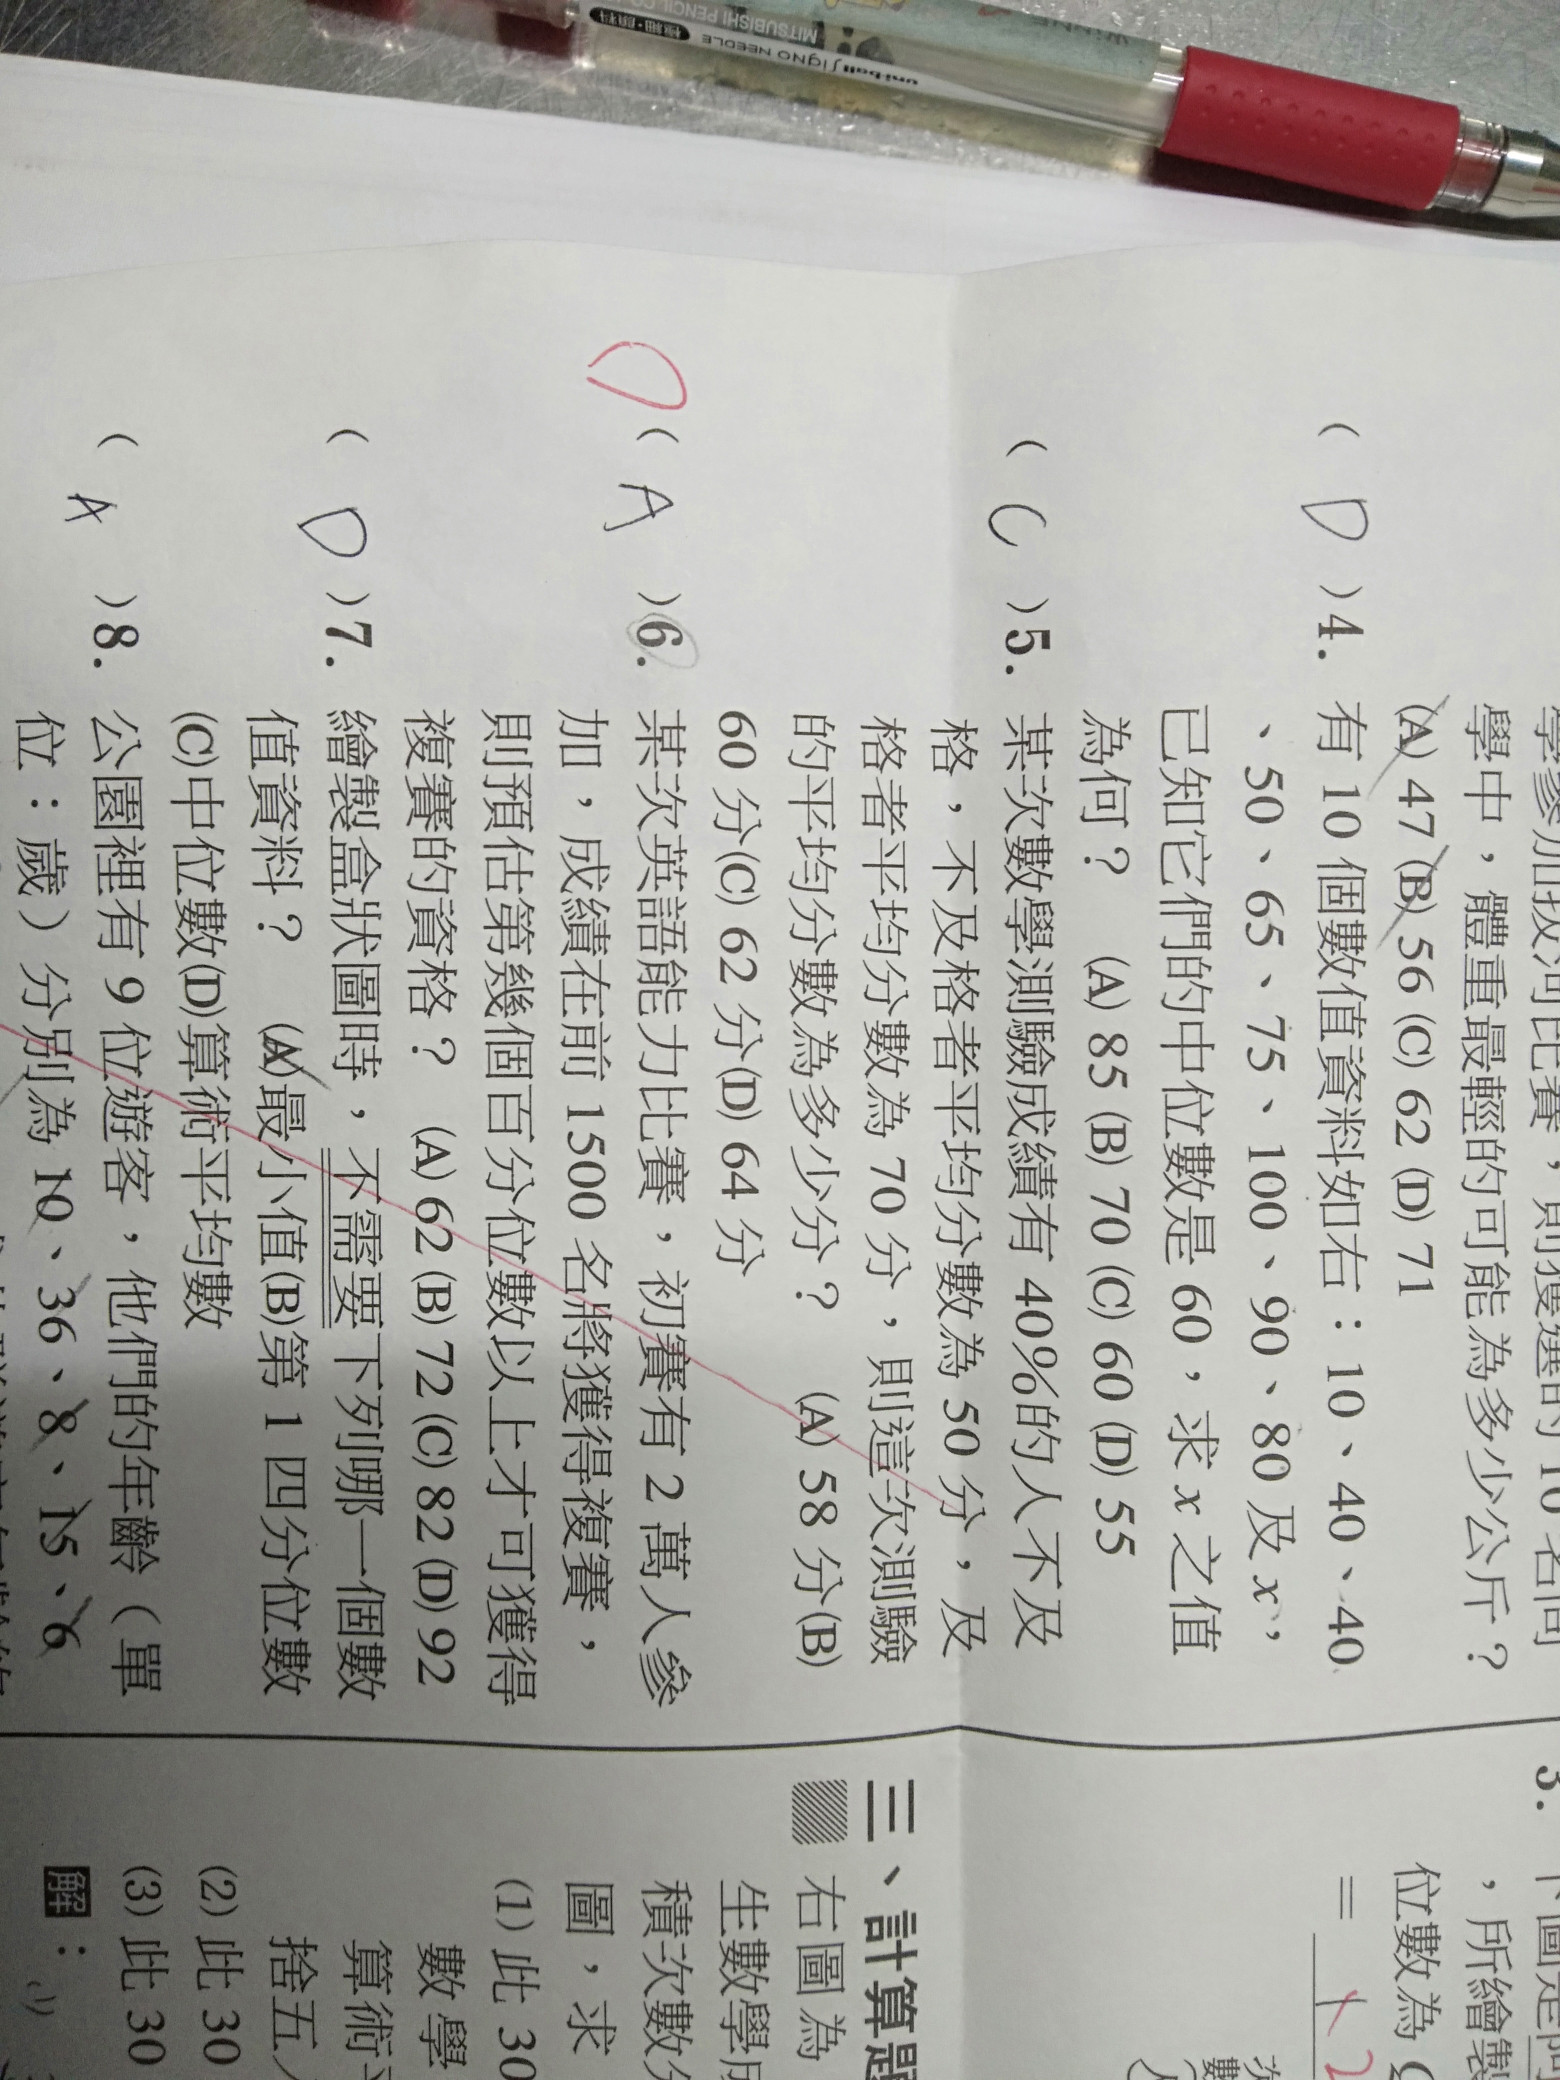 學中，體重最輕的可能為多少公斤？
(A) 47 (B) 56 (C) 62 (D) 71
( D )4. 有 10 個數值資料如右：10、40、40
、50、65、75、100、90、80 及 x，
已知它們的中位數是 60，求 x 之值
為何？ (A) 85 (B) 70 (C) 60 (D) 55
( C )5. 某次數學測驗成績有 40%的人不及
格，不及格者平均分數為 50 分，及
格者平均分數為 70 分，則這次測驗
的平均分數為多少分？ (A) 58 分(B)
60 分(C) 62 分(D) 64 分
D
( A )6. 某次英語能力比賽，初賽有 2 萬人參
加，成績在前 1500 名將獲得複賽，
則預估第幾個百分位數以上才可獲得
複賽的資格？ (A) 62 (B) 72 (C) 82 (D) 92
( D )7. 繪製盒狀圖時，不需要下列哪一個數
值資料？ (A)最小值(B)第 1 四分位數
(C)中位數(D)算術平均數
( A )8. 公園裡有 9 位遊客，他們的年齡（單
位：歲）分別為 10、36、8、15、6
3.
，所繪製
位數為
=
三、計算題
右圖為
生數學
積次數
圖，求
(1) 此 30
數學
算術
捨五
(2) 此 30
(3) 此 30
解：(1)
uni-ball SIGNO NEEDLE
MITSUBISHI PENCIL CO